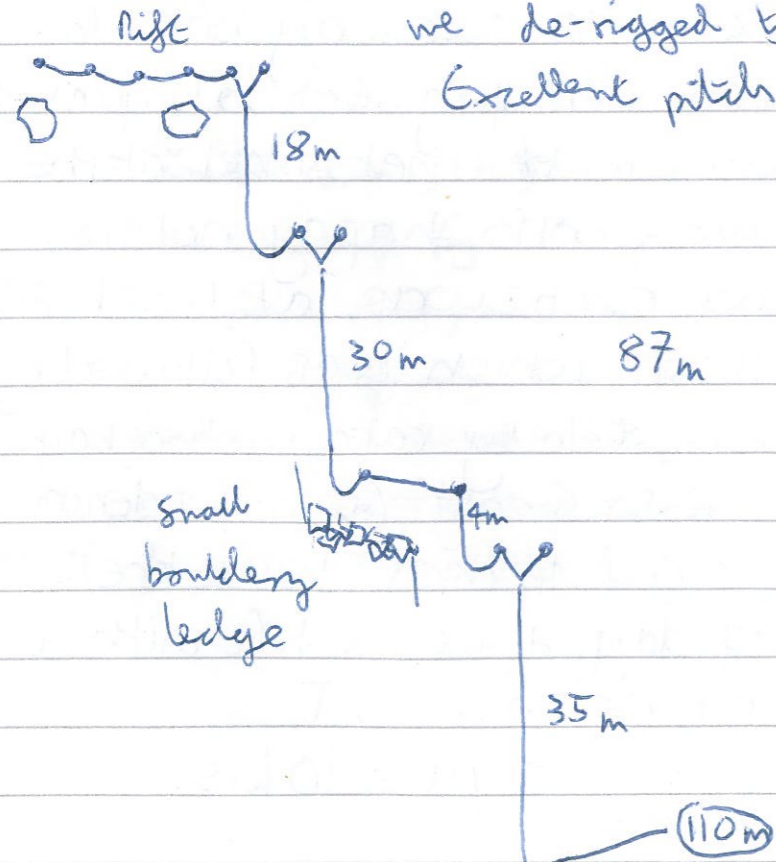 Rift
we de-rigged
Excellent pitch
18m
30m
87m
4m
Small
bouldery
ledge
35m
110m